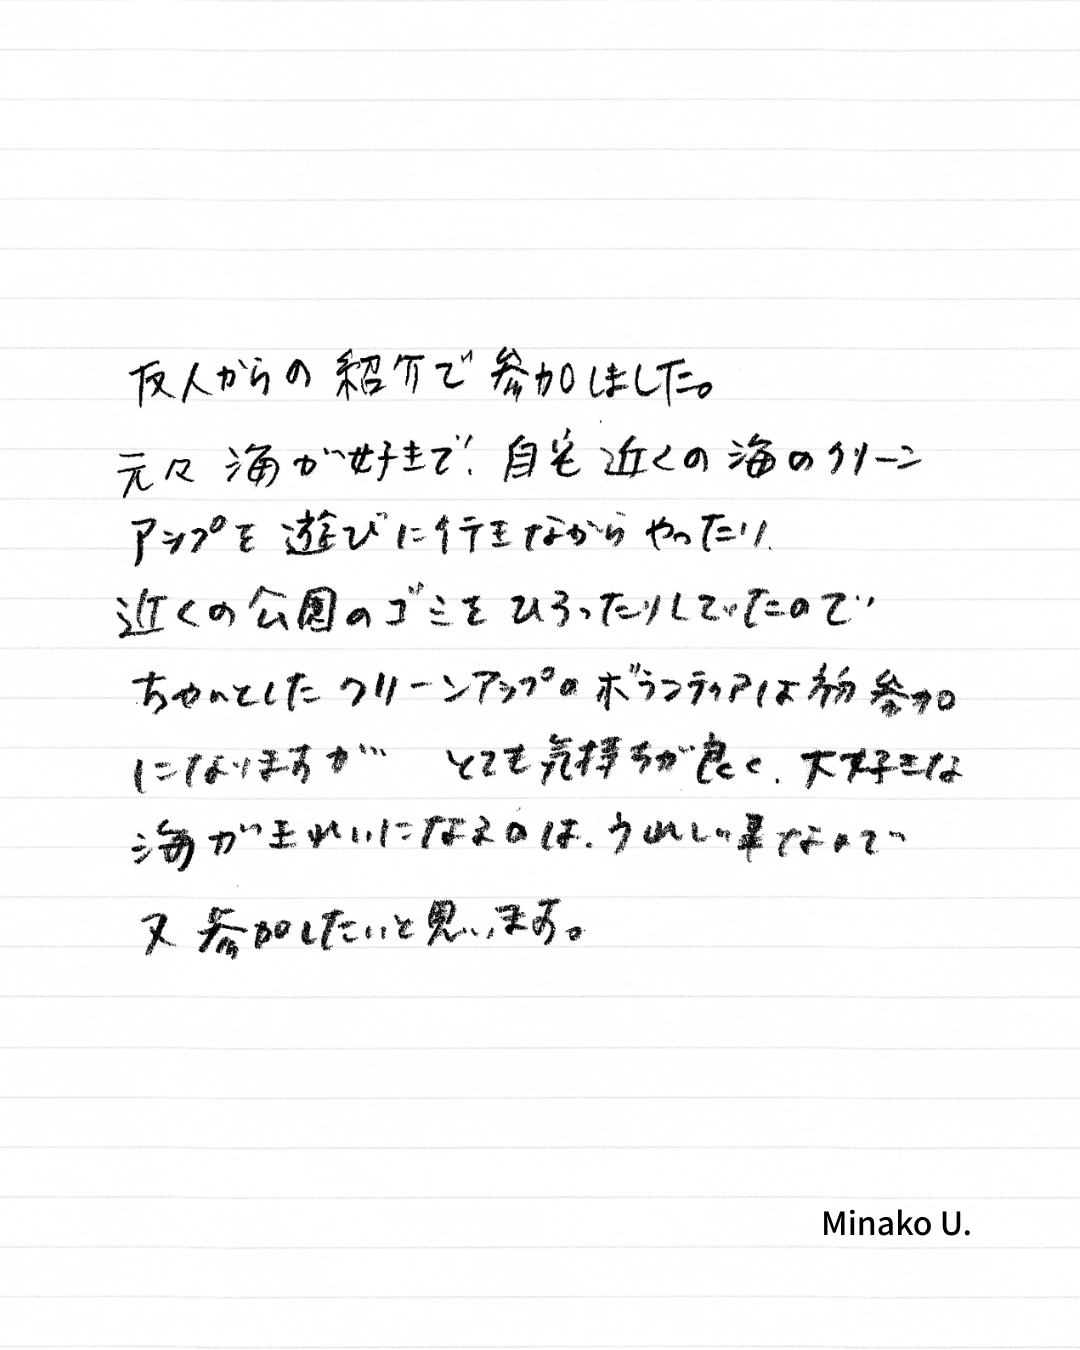 友人からの紹介で参加しました。
元々海が好きで、自宅近くの海のクリーン
アップを遊びに行きながらやったり、
近くの公園のゴミをひろったりしていたので
ちゃんとしたクリーンアップのボランティアは初参加
になりますが とても気持ちが良く、大好きな
海がきれいになるのは、うれしい事なので
又参加したいと思います。
Minako U.